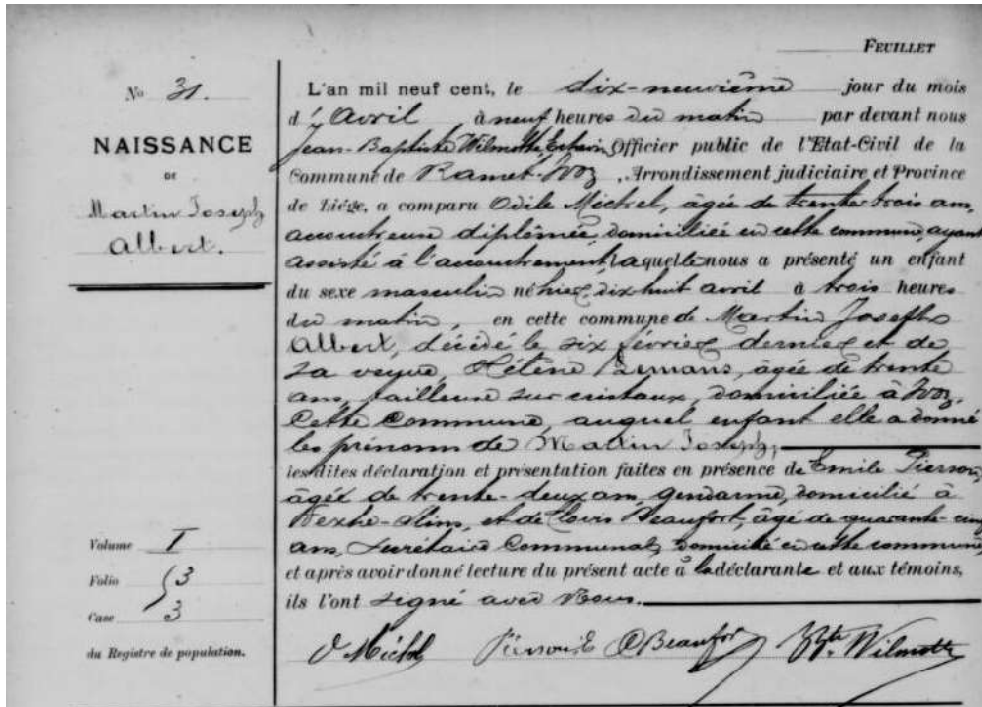 FEUILLET
No 31.
NAISSANCE
DE
Martin Joseph
Albert.
L'an mil neuf cent, le dix-neuvième jour du mois
d'Avril à neuf heures du matin par devant nous
Jean-Baptiste Wilmotte, Echevin, Officier public de l'Etat-Civil de la
Commune de Ramet-Ivoz, Arrondissement judiciaire et Province
de Liége, a comparu Odile Michel, âgée de trente trois ans,
accoucheuse diplômée, domiciliée en cette commune, ayant
assisté à l'accouchement, laquelle nous a présenté un enfant
du sexe masculin né hier, dix huit avril à trois heures
du matin, en cette commune de Martin Joseph
Albert, décédé le six février dernier et de
sa veuve, Hélène, âgée de trente
ans, tailleuse sur cristaux, domiciliée à Ivoz,
cette Commune, auquel enfant elle a donné
les prénoms de Martin Joseph,
les dites déclaration et présentation faites en présence de Emile Pierson,
âgé de trente-deux ans, gendarme, domicilié à
Hexhe-Slins, et de Clovis Beaufort, âgé de quarante-cinq
ans, Secrétaire Communal, domicilié en cette commune,
et après avoir donné lecture du présent acte à la déclarante et aux témoins,
ils l'ont signé avec Nous.
Volume I
Folio 3
Case 3
du Registre de population.
O Michel Pierson E C Beaufort Bte Wilmotte